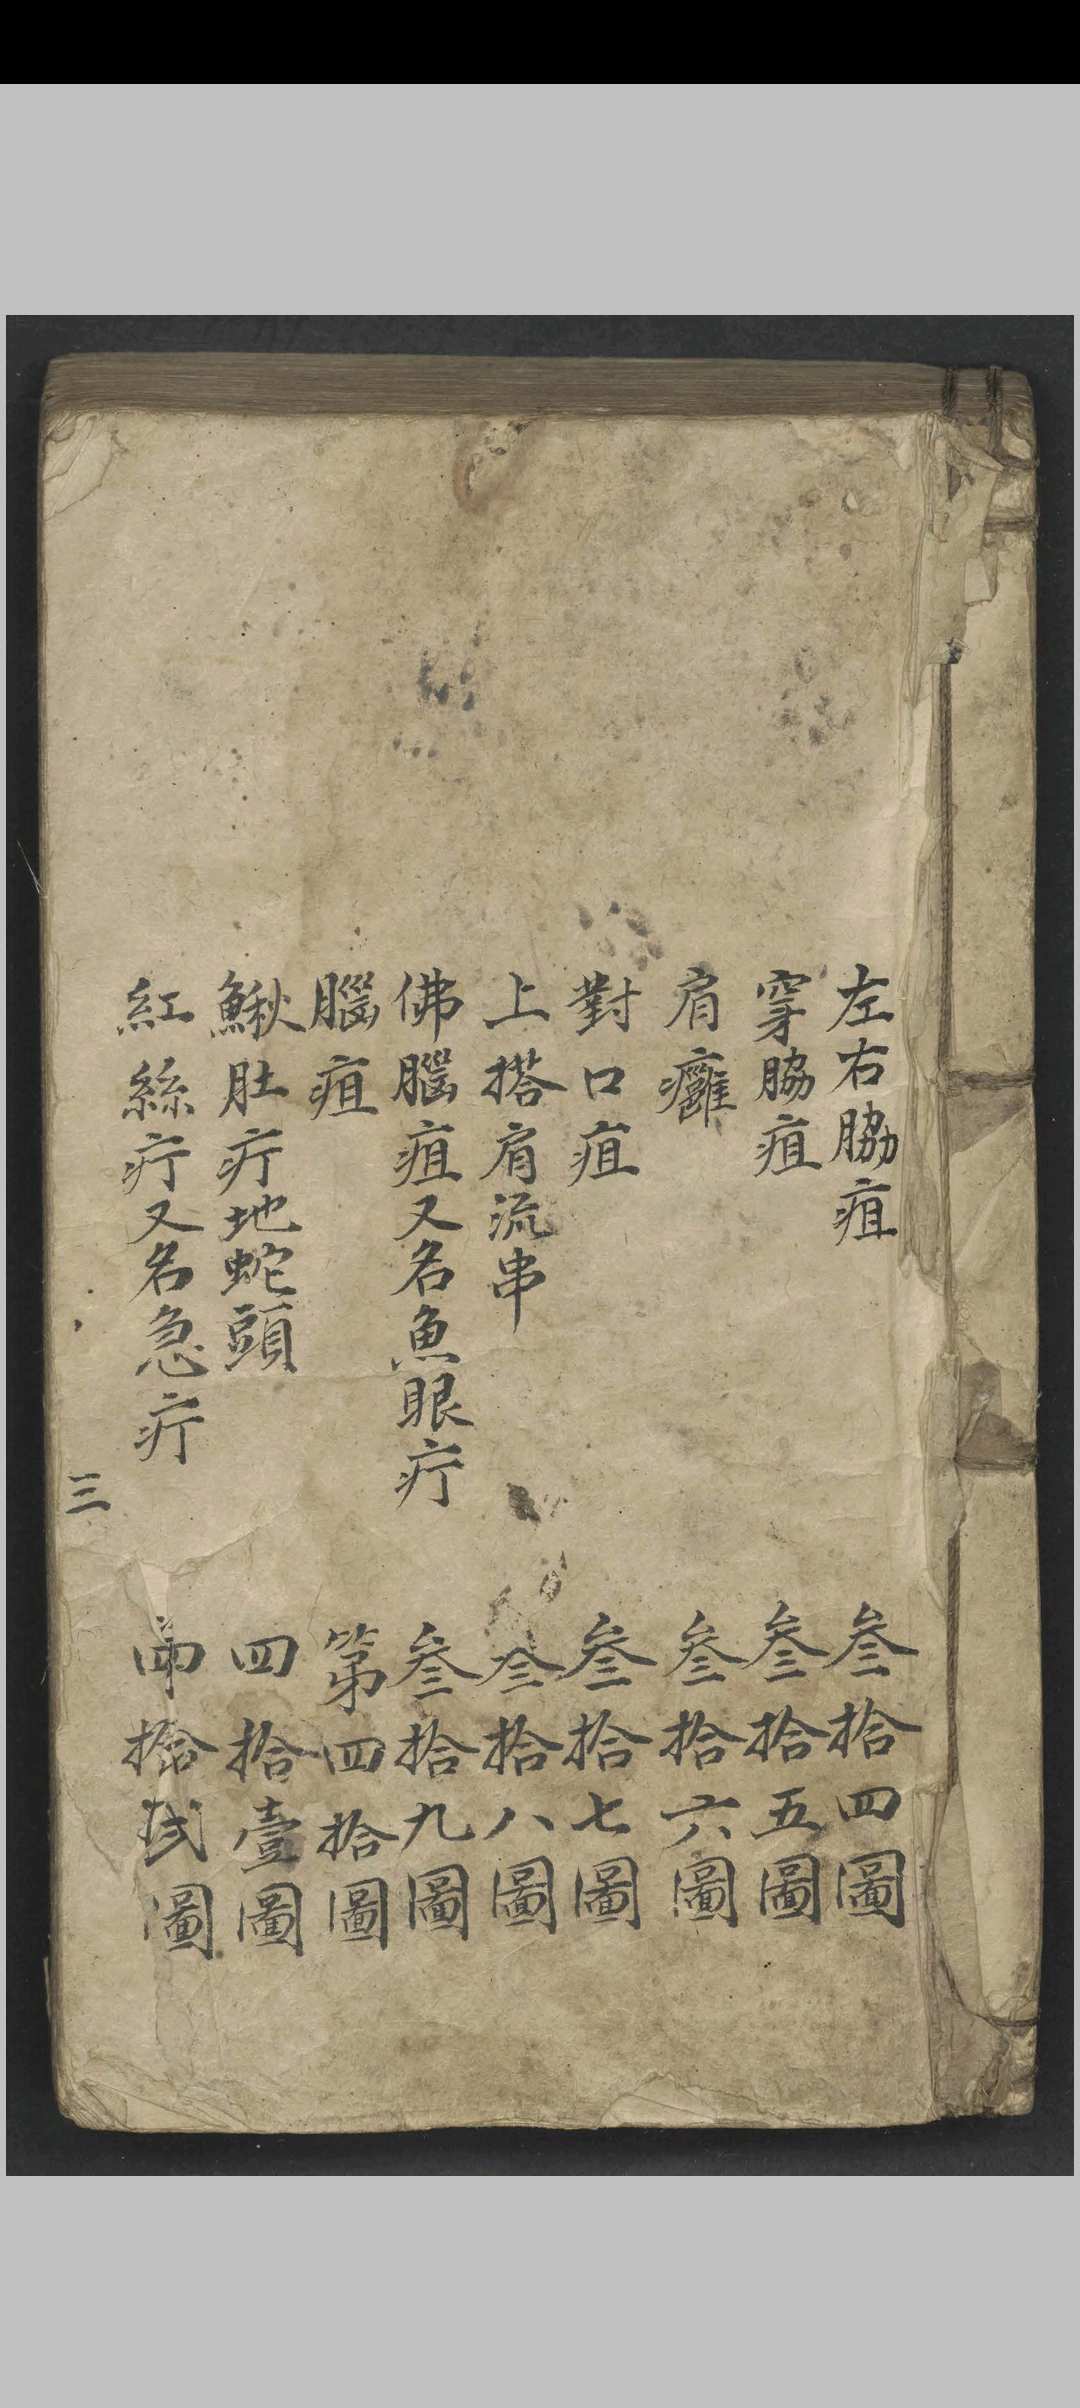 左右脇疽 叁拾四圖
穿脇疽 叁拾五圖
肩癰 叁拾六圖
對口疽 叁拾七圖
上搭肩流串 叁拾八圖
佛腦疽又名魚眼疔 叁拾九圖
腦疽 第四拾圖
鰍肚疔地蛇頭 四拾壹圖
紅絲疔又名急疔 四拾弍圖
三